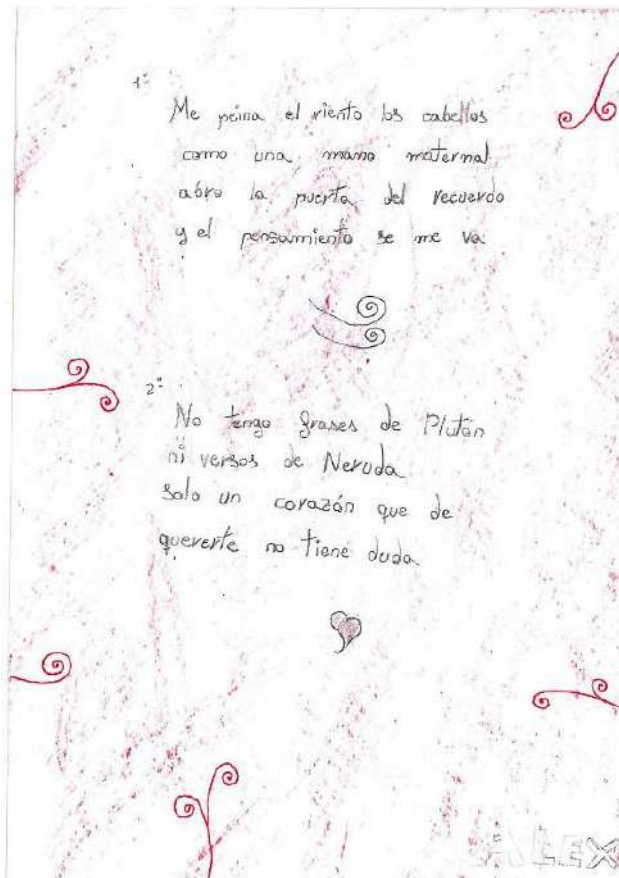 1º
Me peina el viento los cabellos
como una mano maternal
abro la puerta del recuerdo
y el pensamiento se me va
2º
No tengo frases de Plutón
ni versos de Neruda
solo un corazón que de
quererte no tiene duda.
ALEX